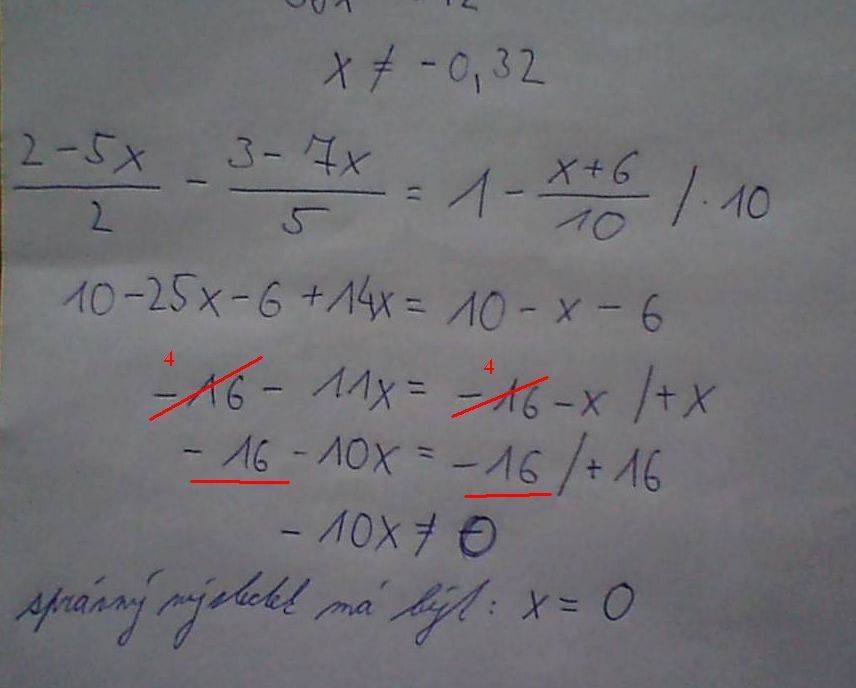 x ≠ -0,32
(2-5x)/2 - (3-7x)/5 = 1 - (x+6)/10 /·10
10-25x-6+14x = 10-x-6
4 4
-16 - 11x = -16-x /+x
-16 -10x = -16 /+16
-10x ≠ 0
správný výsledek má být: x = 0